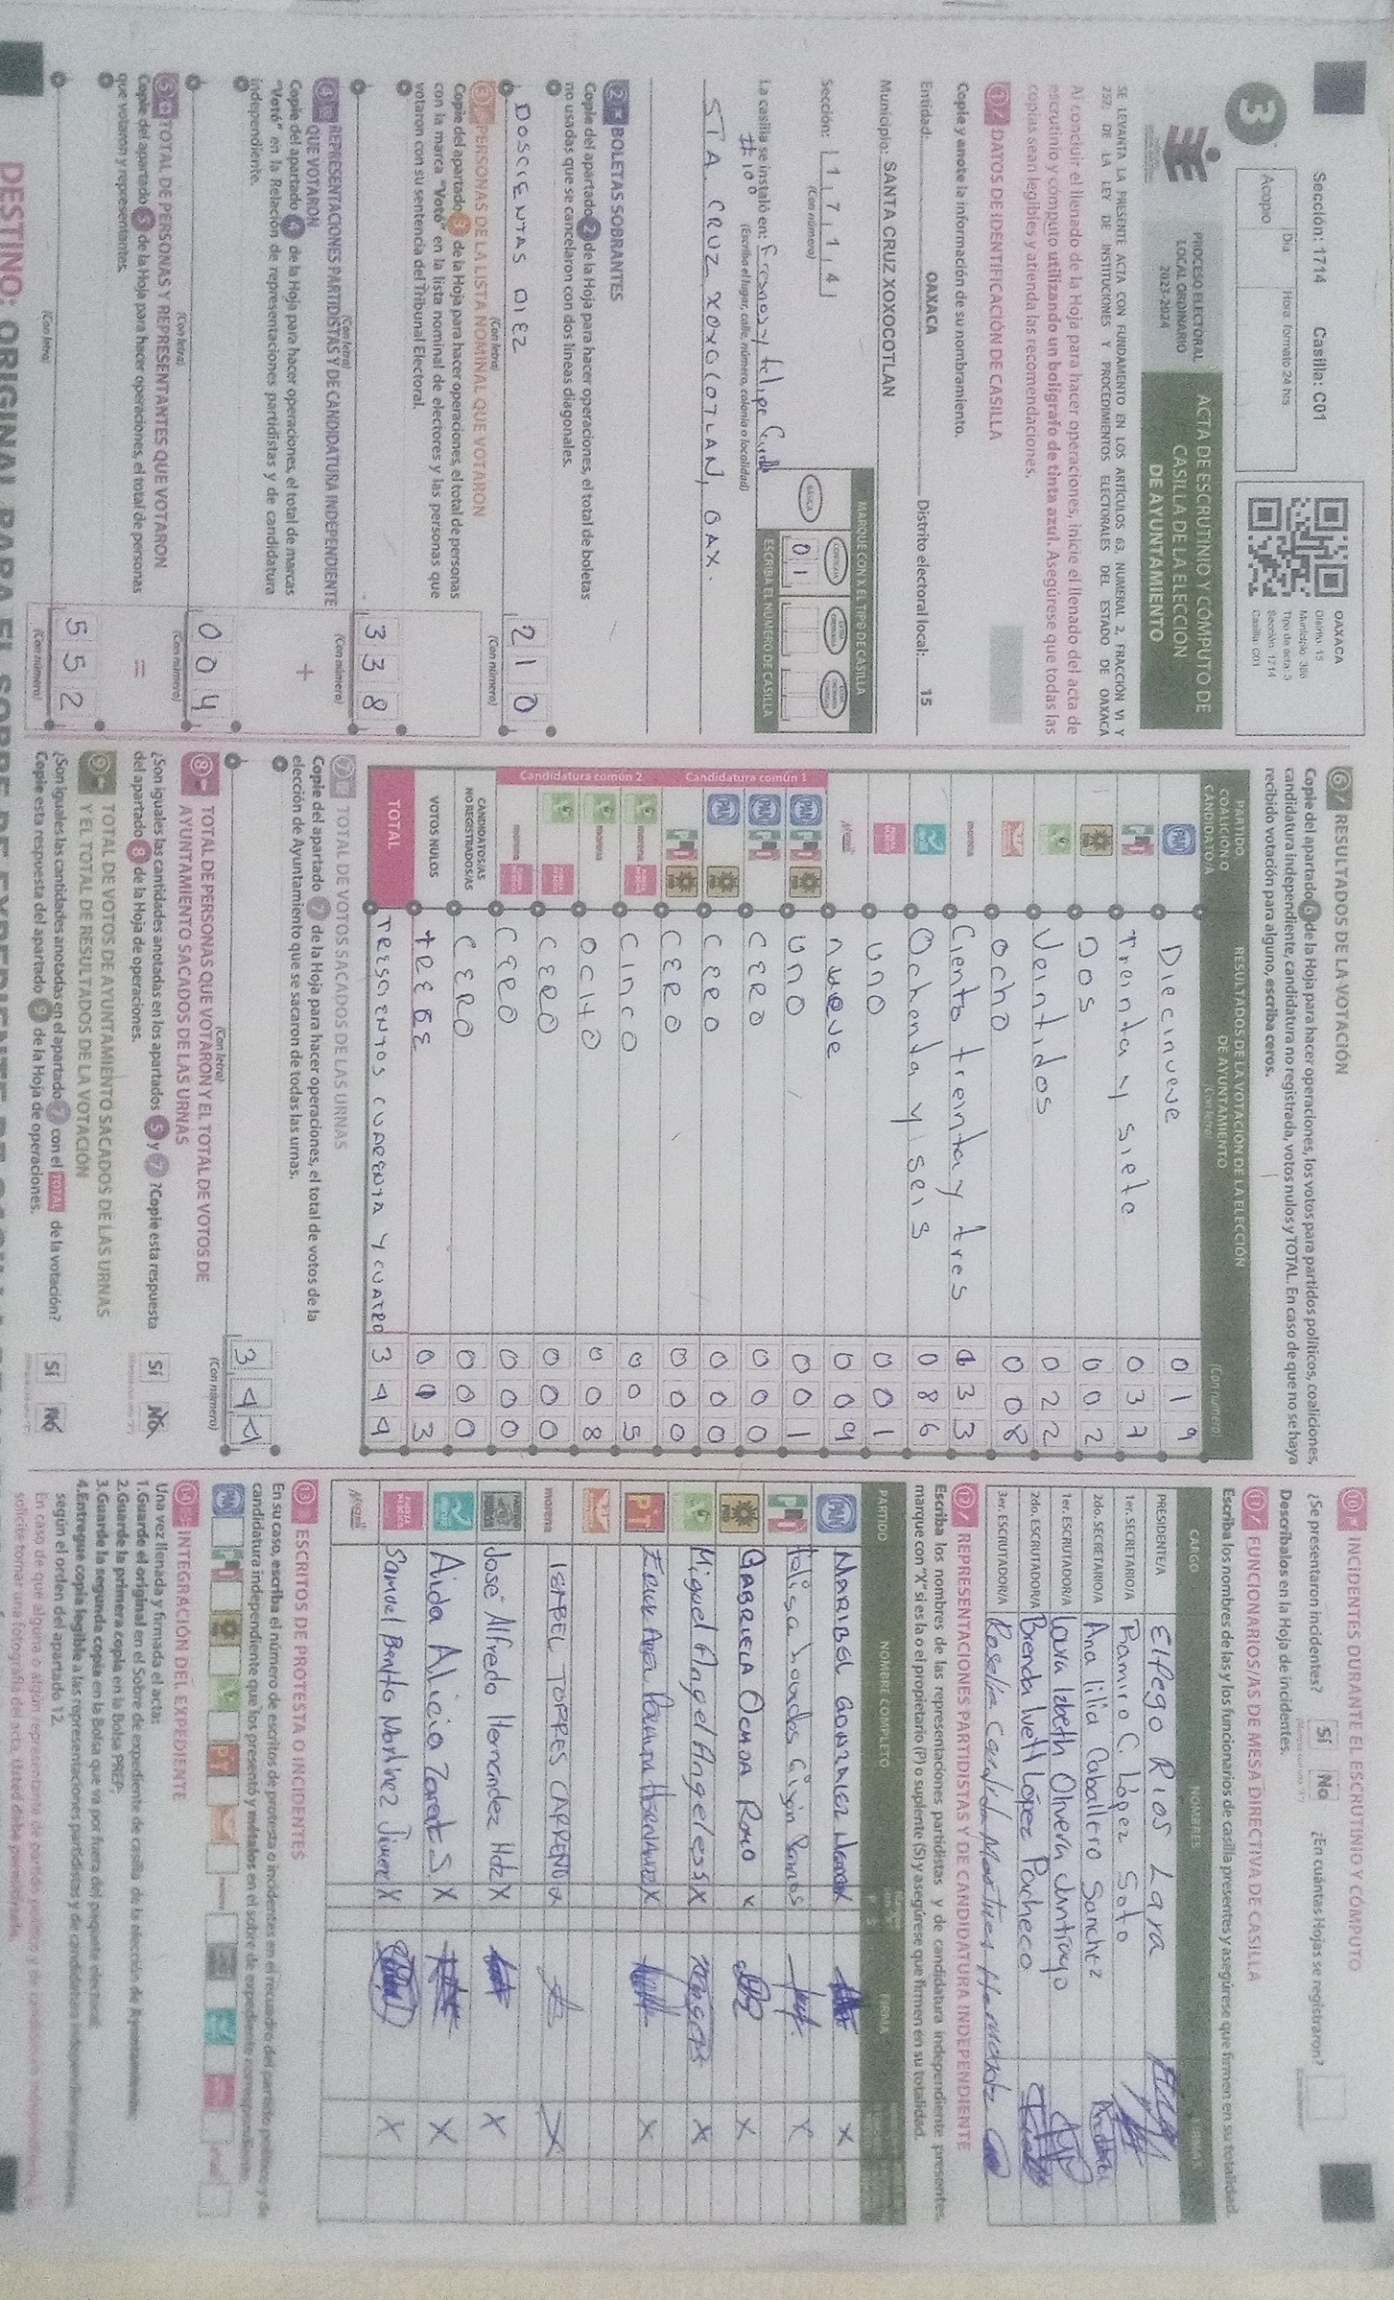 Sección: 1714 Casilla: C01
3
Acopio
Día
Hora formato 24 hrs
OAXACA
Distrito: 15
Municipio: 386
Tipo de acta: 3
Sección: 1714
Casilla: C01
PROCESO ELECTORAL
LOCAL ORDINARIO
2023-2024
ACTA DE ESCRUTINIO Y CÓMPUTO DE
CASILLA DE LA ELECCIÓN
DE AYUNTAMIENTO
SE LEVANTA LA PRESENTE ACTA CON FUNDAMENTO EN LOS ARTÍCULOS 63, NUMERAL 2, FRACCIÓN VI Y
252, DE LA LEY DE INSTITUCIONES Y PROCEDIMIENTOS ELECTORALES DEL ESTADO DE OAXACA
Al concluir el llenado de la Hoja para hacer operaciones, inicie el llenado del acta de
escrutinio y cómputo utilizando un bolígrafo de tinta azul. Asegúrese que todas las
copias sean legibles y atienda las recomendaciones.
1 DATOS DE IDENTIFICACIÓN DE CASILLA
Copie y anote la información de su nombramiento.
Entidad: OAXACA Distrito electoral local: 15
Municipio: SANTA CRUZ XOXOCOTLAN
Sección: 1 7 1 4
(Con número)
MARQUE CON X EL TIPO DE CASILLA
BÁSICA
0 1
ESCRIBA EL NÚMERO DE CASILLA
La casilla se instaló en:
#100
(Escriba el lugar, calle, número, colonia o localidad)
STA CRUZ XOXOCOTLAN, OAX.
2 BOLETAS SOBRANTES
Copie del apartado 2 de la Hoja para hacer operaciones, el total de boletas
no usadas que se cancelaron con dos líneas diagonales.
DOSCIENTAS DIEZ 2 1 0
(Con letra) (Con número)
3 PERSONAS DE LA LISTA NOMINAL QUE VOTARON
Copie del apartado 3 de la Hoja para hacer operaciones, el total de personas
con la marca "Votó" en la lista nominal de electores y las personas que
votaron con su sentencia del Tribunal Electoral.
3 3 8
(Con letra) (Con número)
4 REPRESENTACIONES PARTIDISTAS Y DE CANDIDATURA INDEPENDIENTE
QUE VOTARON
Copie del apartado 4 de la Hoja para hacer operaciones, el total de marcas
"Votó" en la Relación de representaciones partidistas y de candidatura
independiente.
+
0 0 4
(Con letra) (Con número)
5 TOTAL DE PERSONAS Y REPRESENTANTES QUE VOTARON
Copie del apartado 5 de la Hoja para hacer operaciones, el total de personas
que votaron y representantes.
=
5 5 2
(Con letra) (Con número)
6 RESULTADOS DE LA VOTACIÓN
Copie del apartado 6 de la Hoja para hacer operaciones, los votos para partidos políticos, coaliciones,
candidatura independiente, candidatura no registrada, votos nulos y TOTAL. En caso de que no se haya
recibido votación para alguno, escriba ceros.
PARTIDO,
COALICIÓN O
CANDIDATO/A
RESULTADOS DE LA VOTACIÓN DE LA ELECCIÓN
DE AYUNTAMIENTO
(Con letra) (Con número)
PAN Diecinueve 0 1 9
PRI Treinta y siete 0 3 7
PRD Dos 0 0 2
Veintidos 0 2 2
ocho 0 0 8
morena Ciento treinta y tres 1 3 3
Ochenta y seis 0 8 6
uno 0 0 1
nueve 0 0 9
Candidatura común 1
PAN PRI PRD uno 0 0 1
PAN PRI CERO 0 0 0
PAN PRD CERO 0 0 0
PRI PRD CERO 0 0 0
Candidatura común 2
morena CINCO 0 0 5
morena OCHO 0 0 8
CERO 0 0 0
morena CERO 0 0 0
CANDIDATOS/AS
NO REGISTRADOS/AS CERO 0 0 0
VOTOS NULOS TREEE 0 0 3
TOTAL TRESCIENTOS CUARENTA Y CUATRO 3 4 4
7 TOTAL DE VOTOS SACADOS DE LAS URNAS
Copie del apartado 7 de la Hoja para hacer operaciones, el total de votos de la
elección de Ayuntamiento que se sacaron de todas las urnas.
3 4 4
(Con letra) (Con número)
8 TOTAL DE PERSONAS QUE VOTARON Y EL TOTAL DE VOTOS DE
AYUNTAMIENTO SACADOS DE LAS URNAS
¿Son iguales las cantidades anotadas en los apartados 5 y 7? Copie esta respuesta
del apartado 8 de la Hoja de operaciones.
Sí No
9 TOTAL DE VOTOS DE AYUNTAMIENTO SACADOS DE LAS URNAS
Y EL TOTAL DE RESULTADOS DE LA VOTACIÓN
¿Son iguales las cantidades anotadas en el apartado 7 con el TOTAL de la votación?
Copie esta respuesta del apartado 9 de la Hoja de operaciones.
Sí No
10 INCIDENTES DURANTE EL ESCRUTINIO Y CÓMPUTO
¿Se presentaron incidentes? Sí No ¿En cuántas Hojas se registraron?
Descríbalos en la Hoja de incidentes.
11 FUNCIONARIOS/AS DE MESA DIRECTIVA DE CASILLA
Escriba los nombres de las y los funcionarios de casilla presentes y asegúrese que firmen en su totalidad.
CARGO NOMBRES FIRMAS
PRESIDENTE/A Elfego Rios Lara
1er. SECRETARIO/A Ramiro C. López Soto
2do. SECRETARIO/A Ana lilia Caballero Sanchez
1er. ESCRUTADOR/A Laura Izbeth Olivera Santiago
2do. ESCRUTADOR/A Brenda Ivett López Pacheco
3er. ESCRUTADOR/A Roselia
12 REPRESENTACIONES PARTIDISTAS Y DE CANDIDATURA INDEPENDIENTE
Escriba los nombres de las representaciones partidistas y de candidatura independiente presentes,
marque con "X" si es la o el propietario (P) o suplente (S) y asegúrese que firmen en su totalidad.
PARTIDO NOMBRE COMPLETO P S FIRMA
PAN MARIBEL GONZALEZ X X
PRI X
PRD GABRIELA OCHOA ROMO X X
Miguel Angel Angeles S X X
PT X X
morena ISABEL TORRES CARREÑO X X
José Alfredo Hernandez Hdz X X
Aida Alicia Zarate S. X X
Samuel Benito Martinez Jimenez X X
13 ESCRITOS DE PROTESTA O INCIDENTES
En su caso, escriba el número de escritos de protesta o incidentes en el recuadro del partido político y de
candidatura independiente que los presentó y métalos en el sobre de expediente correspondiente.
PAN PRI PRD PT
14 INTEGRACIÓN DEL EXPEDIENTE
Una vez llenada y firmada el acta:
1.Guarde el original en el Sobre de expediente de casilla de la elección de Ayuntamiento;
2.Guarde la primera copia en la Bolsa PREP;
3.Guarde la segunda copia en la Bolsa que va por fuera del paquete electoral;
4.Entregue copia legible a las representaciones partidistas y de candidatura independiente presentes,
según el orden del apartado 12.
En caso de que alguna o algún representante de partido político y de candidatura independiente lo
solicite tomar una fotografía del acta, Usted debe permitírselo.